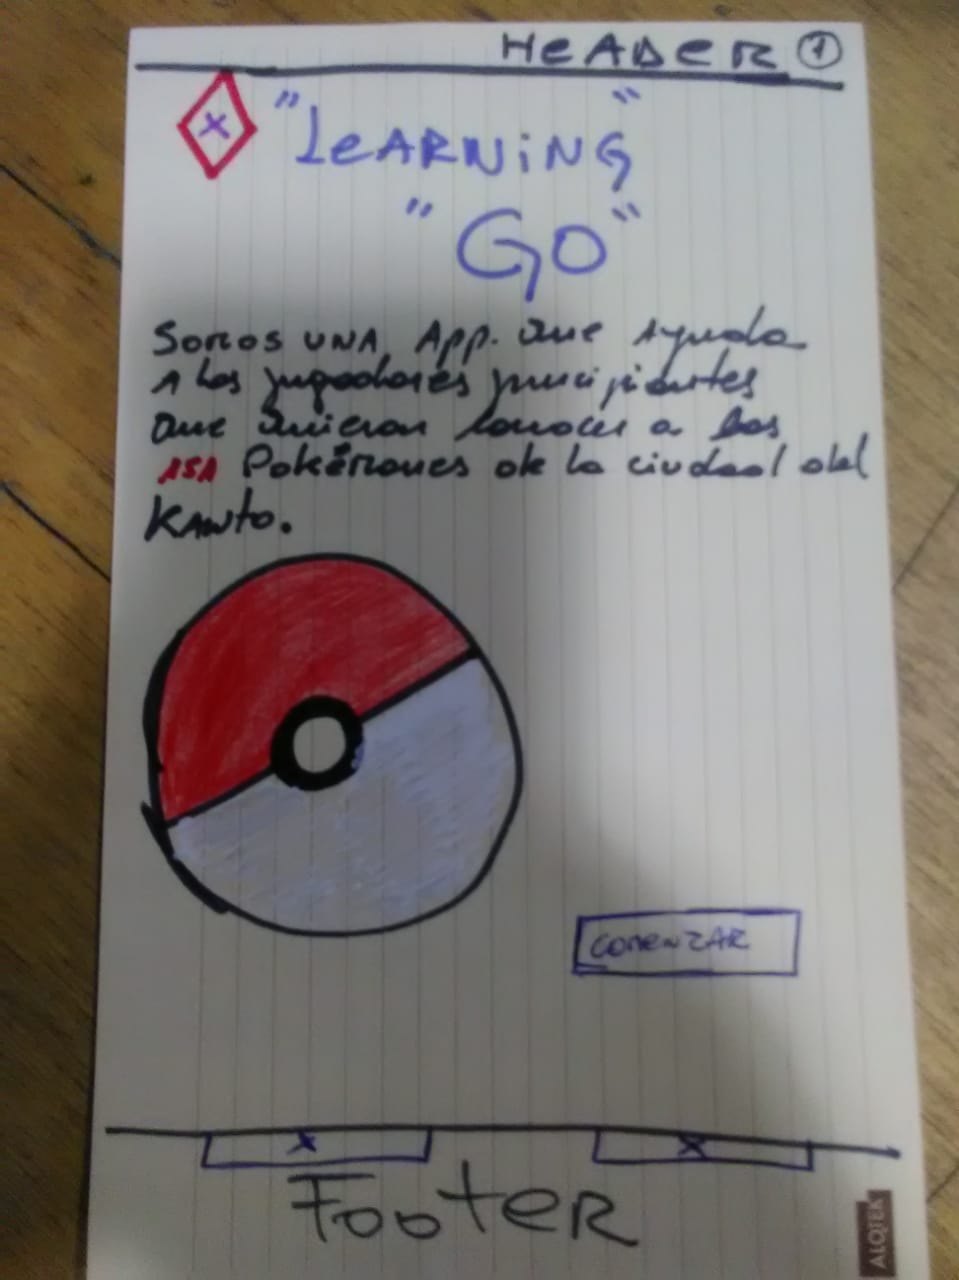 HEADER 1
X "LEARNING"
"GO"
Somos UNA App. Que Ayuda
A los jugadores principiantes
Que Quieran conocer a los
151 Pokémones de la ciudad del
KANTO.
COMENZAR
X X
FOOTER
ALOTEK